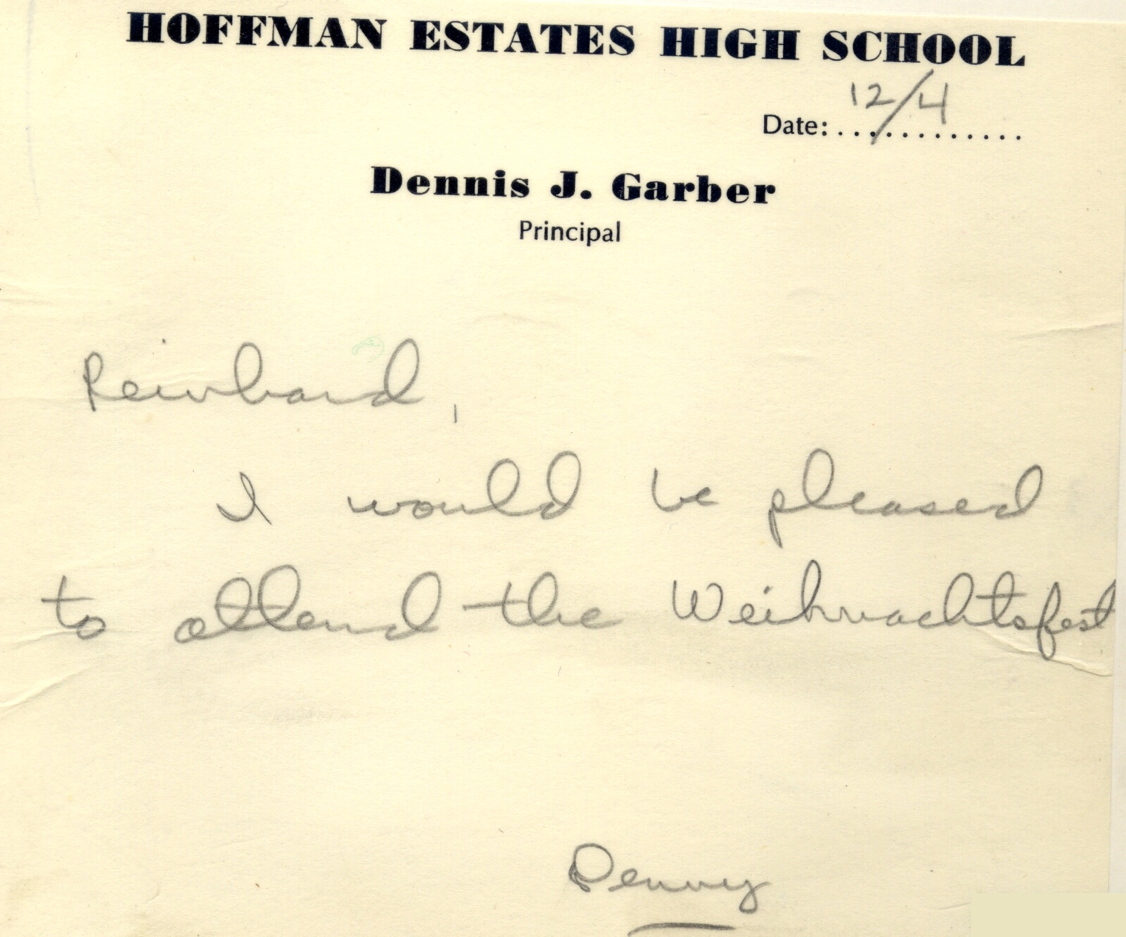 HOFFMAN ESTATES HIGH SCHOOL
12/4
Date:............
Dennis J. Garber
Principal
Reinhard,
I would be pleased
to attend the Weihnachtsfest
Denny